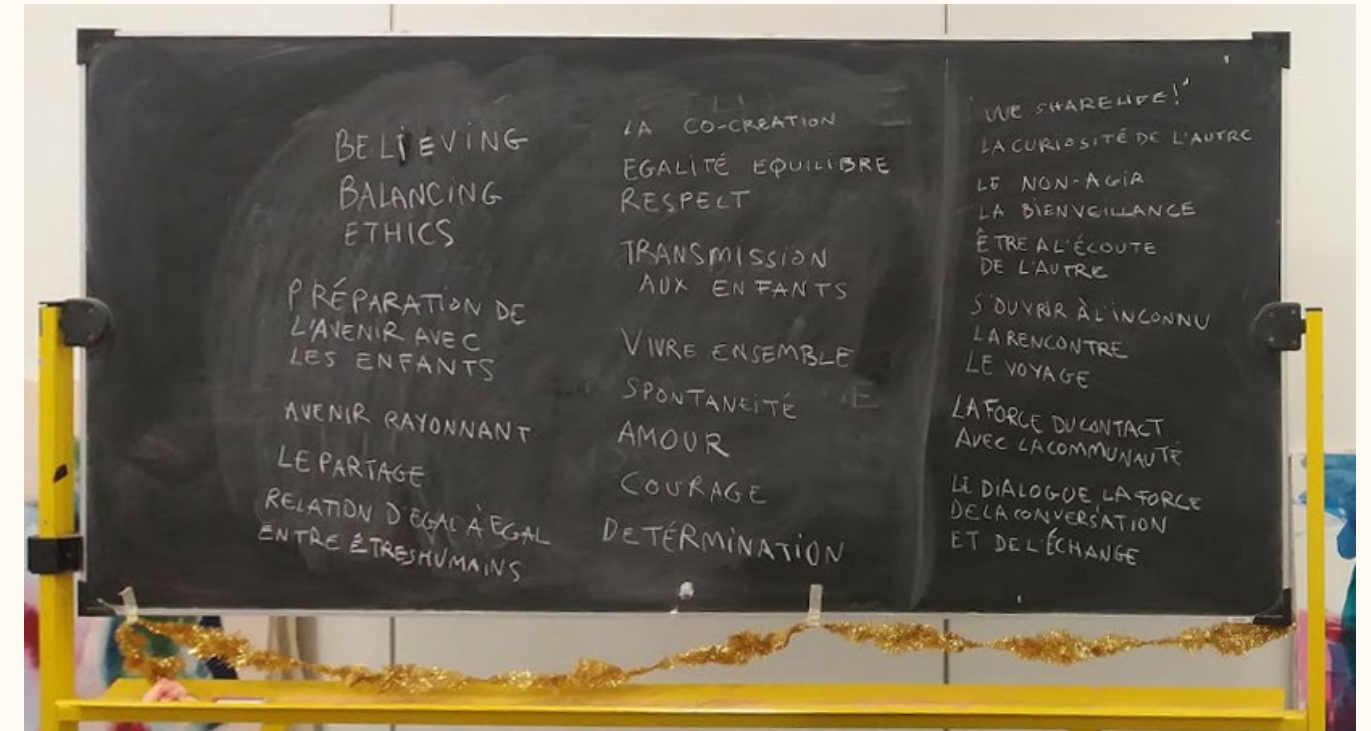 BELIEVING
BALANCING
ETHICS
PRÉPARATION DE
L'AVENIR AVEC
LES ENFANTS
AVENIR RAYONNANT
LE PARTAGE
RELATION D'EGAL À EGAL
ENTRE ÊTRES HUMAINS
LA CO-CREATION
EGALITÉ EQUILIBRE
RESPECT
TRANSMISSION
AUX ENFANTS
VIVRE ENSEMBLE
SPONTANEITÉ
AMOUR
COURAGE
DETÉRMINATION
"WE SHARE LIFE!"
LA CURIOSITÉ DE L'AUTRE
LE NON-AGIR
LA BIENVEILLANCE
ÊTRE A L'ÉCOUTE
DE L'AUTRE
S'OUVRIR À L'INCONNU
LA RENCONTRE
LE VOYAGE
LA FORCE DU CONTACT
AVEC LA COMMUNAUTÉ
LE DIALOGUE LA FORCE
DE LA CONVERSATION
ET DE L'ÉCHANGE